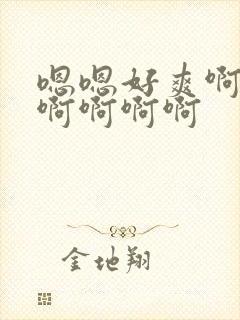 嗯嗯好爽啊
啊啊啊啊
金地翔